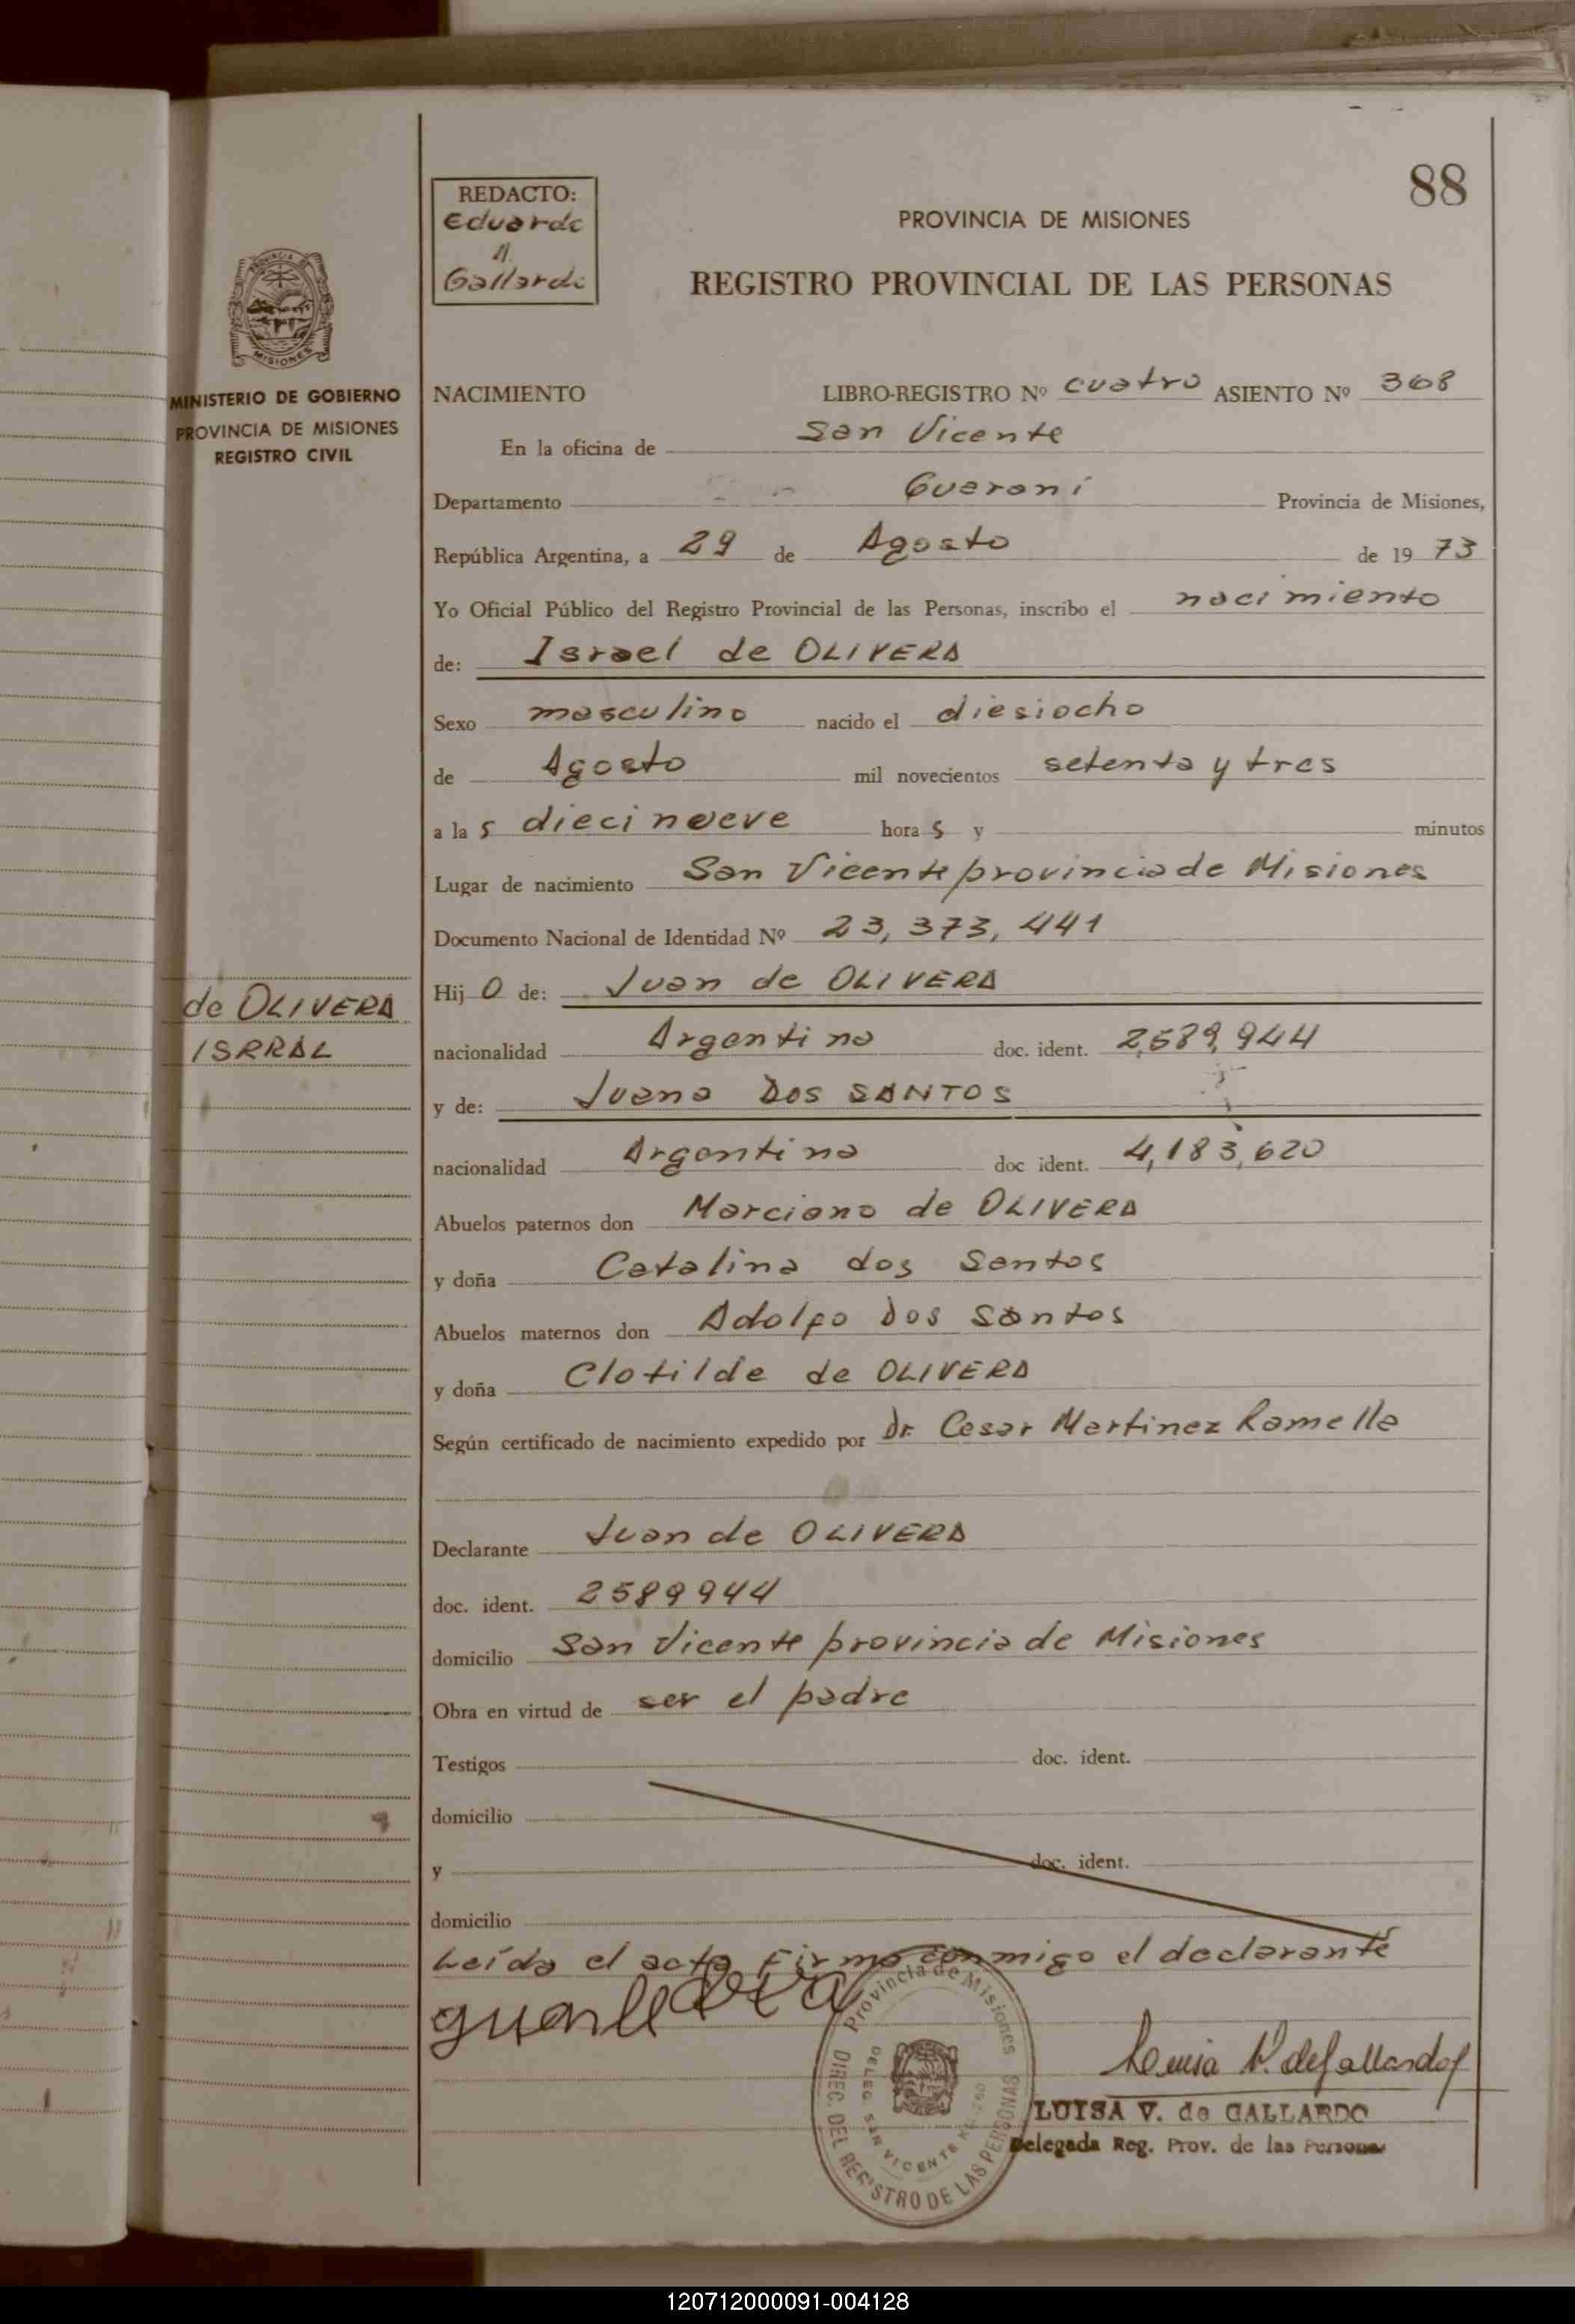 88
REDACTO:
Eduardo
A.
Gallardo
PROVINCIA DE MISIONES
REGISTRO PROVINCIAL DE LAS PERSONAS
MINISTERIO DE GOBIERNO
PROVINCIA DE MISIONES
REGISTRO CIVIL
NACIMIENTO LIBRO-REGISTRO Nº cuatro ASIENTO Nº 368
En la oficina de San Vicente
Departamento Guarani Provincia de Misiones,
República Argentina, a 29 de Agosto de 19 73
Yo Oficial Público del Registro Provincial de las Personas, inscribo el nacimiento
de: Israel de OLIVERA
Sexo masculino nacido el diesiocho
de Agosto mil novecientos setenta y tres
a la s diecinueve hora s y minutos
Lugar de nacimiento San Vicente provincia de Misiones
Documento Nacional de Identidad Nº 23,373,441
Hij o de: Juan de OLIVERA
de OLIVERA
ISRRAL
nacionalidad Argentina doc. ident. 2,589,944
y de: Juana DOS SANTOS
nacionalidad Argentina doc ident. 4,183,620
Abuelos paternos don Marciano de OLIVERA
y doña Catalina dos Santos
Abuelos maternos don Adolfo Dos Santos
y doña Clotilde de OLIVERA
Según certificado de nacimiento expedido por Dr. Cesar Martinez Ramella
Declarante Juan de OLIVERA
doc. ident. 2589944
domicilio San Vicente provincia de Misiones
Obra en virtud de ser el padre
Testigos doc. ident.
domicilio
y doc. ident.
domicilio
Leída el acta firma conmigo el declarante
Provincia de Misiones
DIREC. DEL REGISTRO DE LAS PERSONAS
DELEG. SAN VICENTE
Luisa V. de Gallardo
LUISA V. de GALLARDO
Delegada Reg. Prov. de las Personas
120712000091-004128